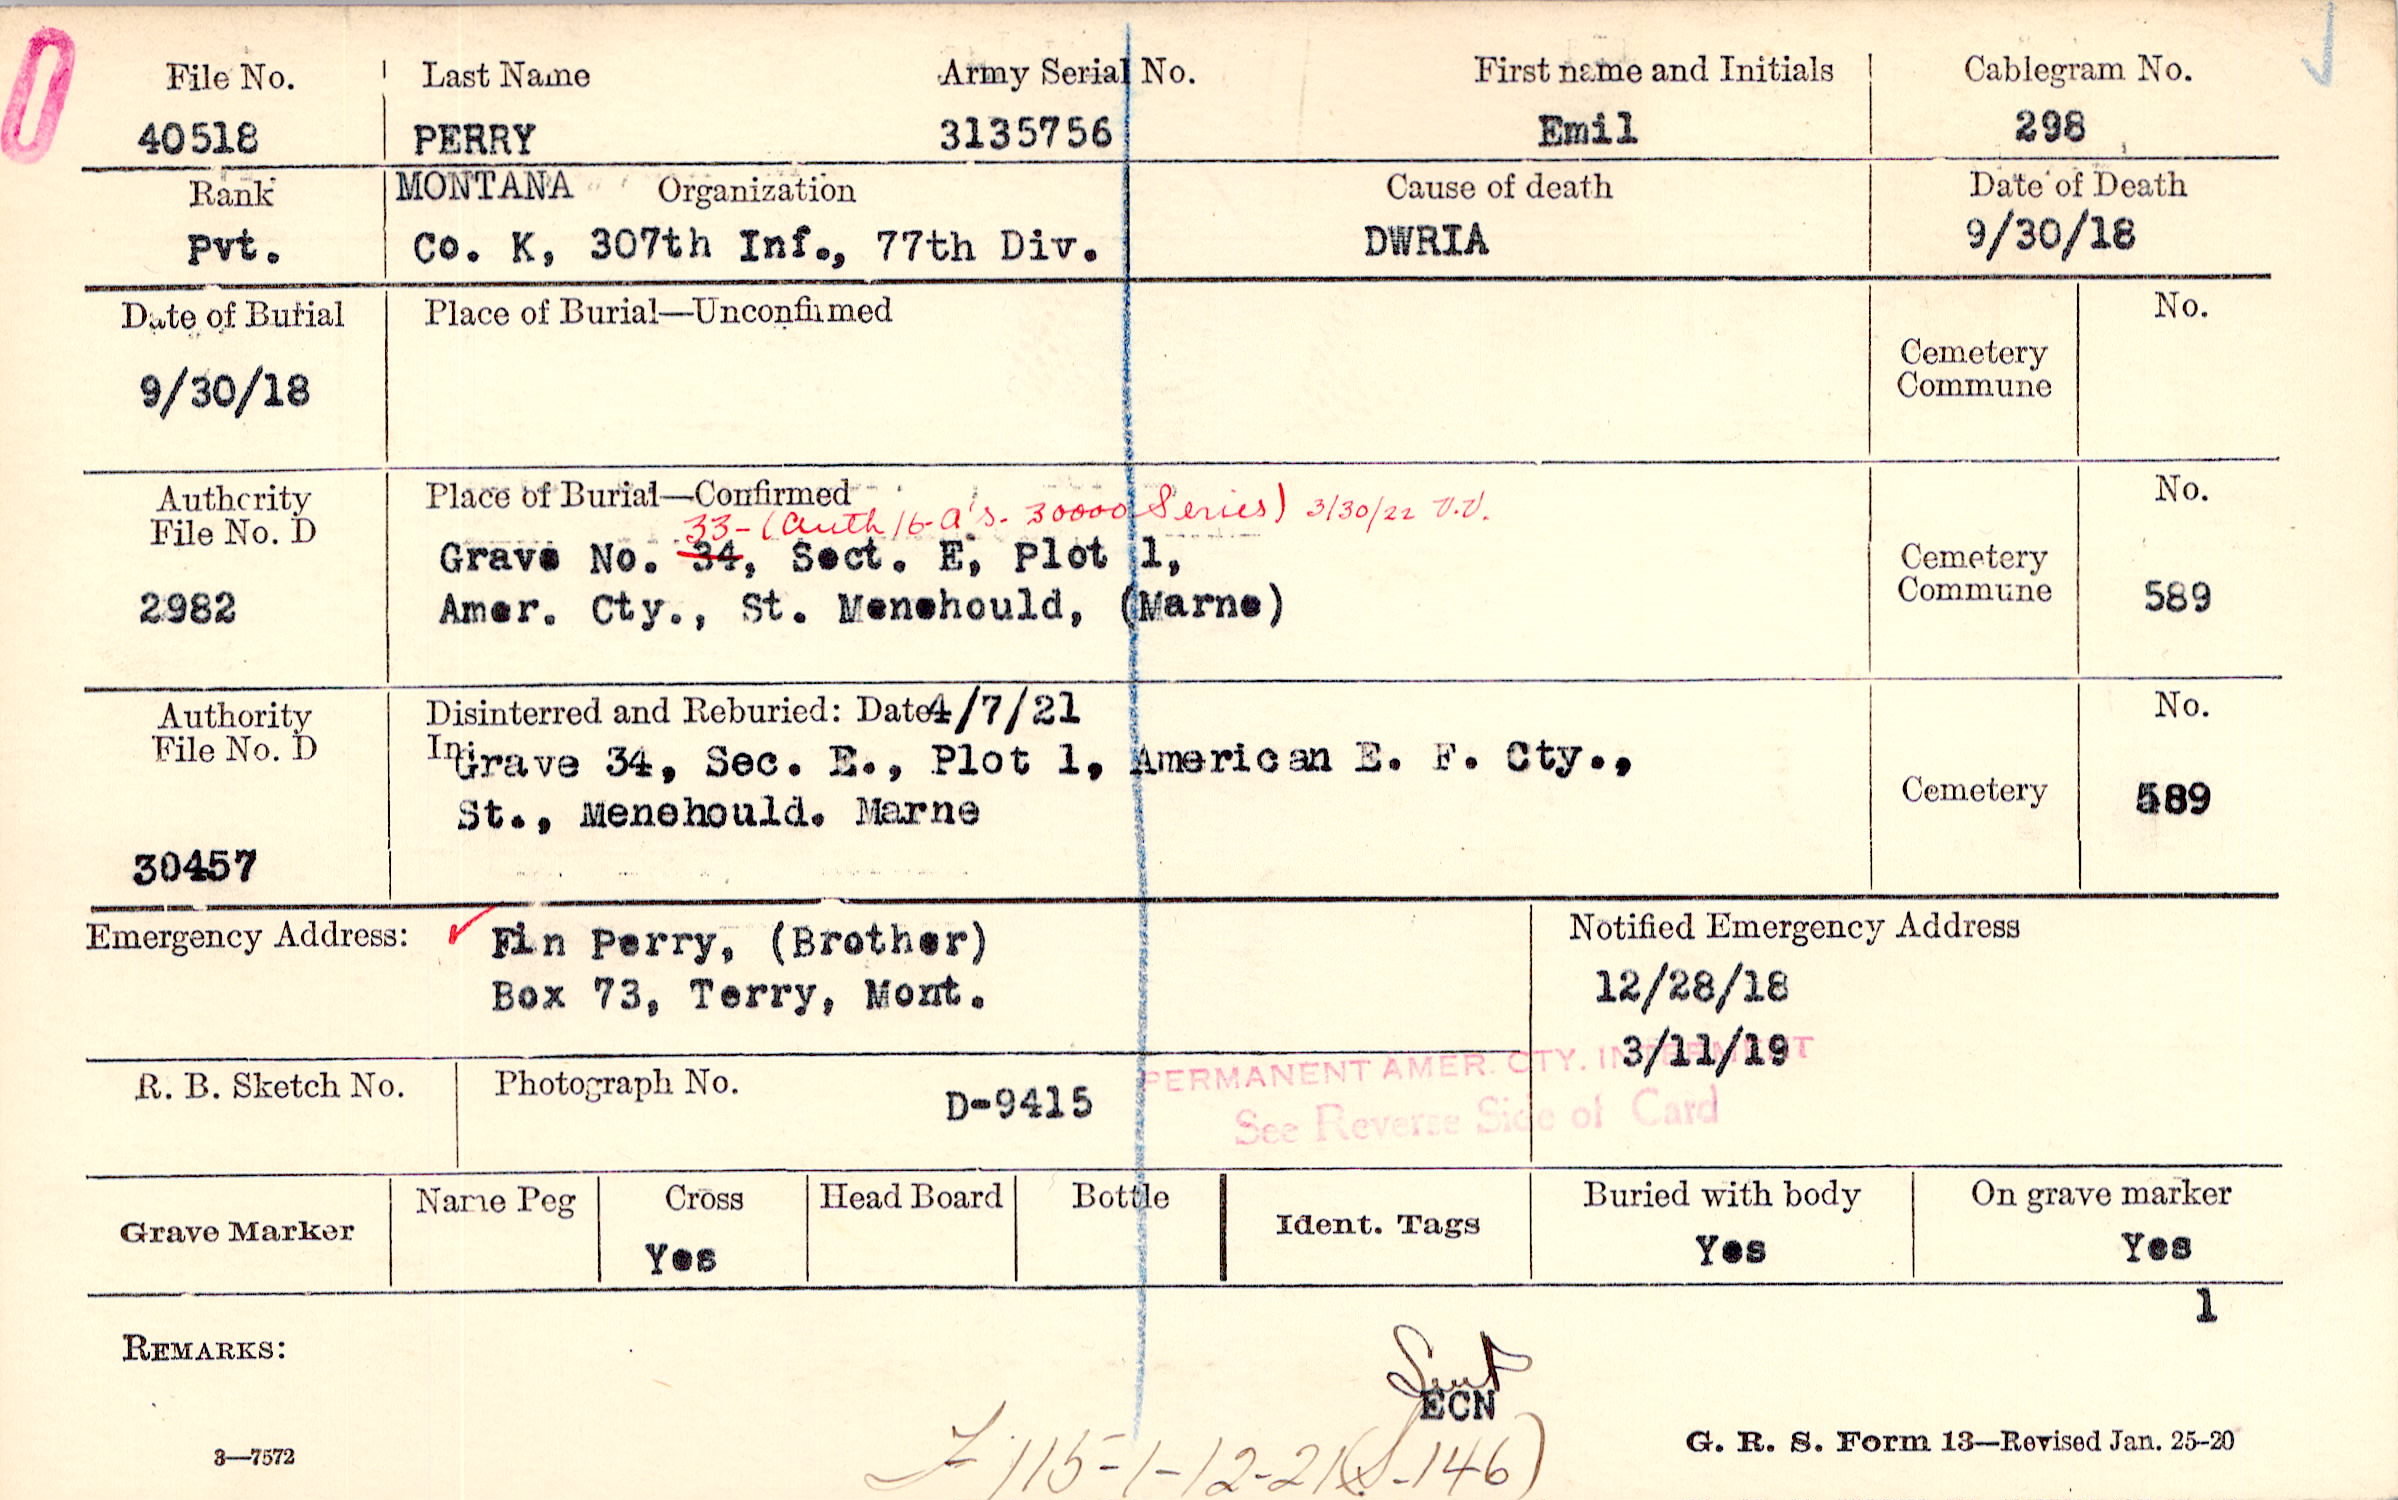 File No. Last Name Army Serial No. First name and Initials Cablegram No.
40518 PERRY 3135756 Emil 298
Rank MONTANA Organization Cause of death Date of Death
Pvt. Co. K, 307th Inf., 77th Div. DWRIA 9/30/18
Date of Burial Place of Burial—Unconfirmed No.
Cemetery
Commune
9/30/18
Authority Place of Burial—Confirmed No.
File No. D 33-(Auth 16-A's- 30000 Series) 3/30/22 V.V.
Grave No. 34, Sect. E, Plot 1, Cemetery
Commune
2982 Amer. Cty., St. Menehould, (Marne) 589
Authority Disinterred and Reburied: Date 4/7/21 No.
File No. D In: Grave 34, Sec. E., Plot 1, American E. F. Cty.,
St., Menehould. Marne Cemetery 589
30457
Emergency Address: Fin Perry, (Brother) Notified Emergency Address
Box 73, Terry, Mont. 12/28/18
3/11/19
PERMANENT AMER. CTY. INTERMENT
R. B. Sketch No. Photograph No. D-9415
See Reverse Side of Card
Grave Marker Name Peg Cross Head Board Bottle Ident. Tags Buried with body On grave marker
Yes Yes Yes
1
REMARKS:
Sent
ECN
115-1-12-21(S-146)
3—7572 G. R. S. Form 13—Revised Jan. 25-20